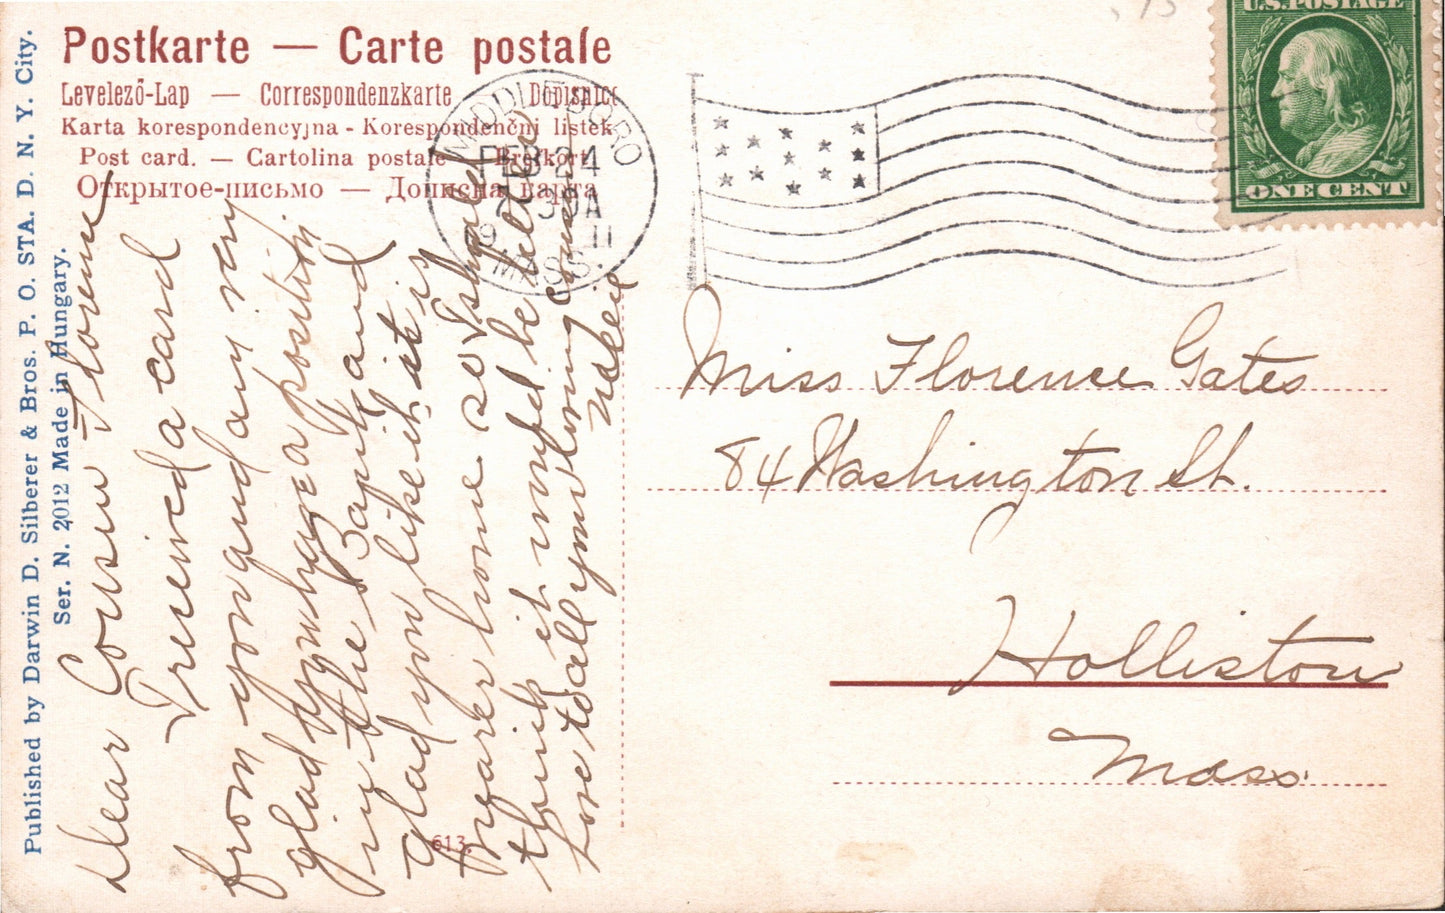 Published by Darwin D. Silberer & Bros. P. O. STA. D. N. Y. City.
Ser. N. 2012 Made in Hungary.
Postkarte — Carte postale
Levelező-Lap — Correspondenzkarte — Dopisnice
Karta korespondencyjna - Korespondenčni listek
Post card. — Cartolina postale — Brefkort
Открытое-письмо — Дописна карта
MIDDLEBORO
FEB 24
30A
19 11
MASS.
U.S. POSTAGE
ONE CENT
Dear Cousin Florence
I received a card
from you and am very
glad you have a position
in the Bank and
glad you like it it is
near home so I should
think it would be nice
Love to all your loving cousin
Miss Florence Gates
84 Washington St.
Holliston
Mass.
613.